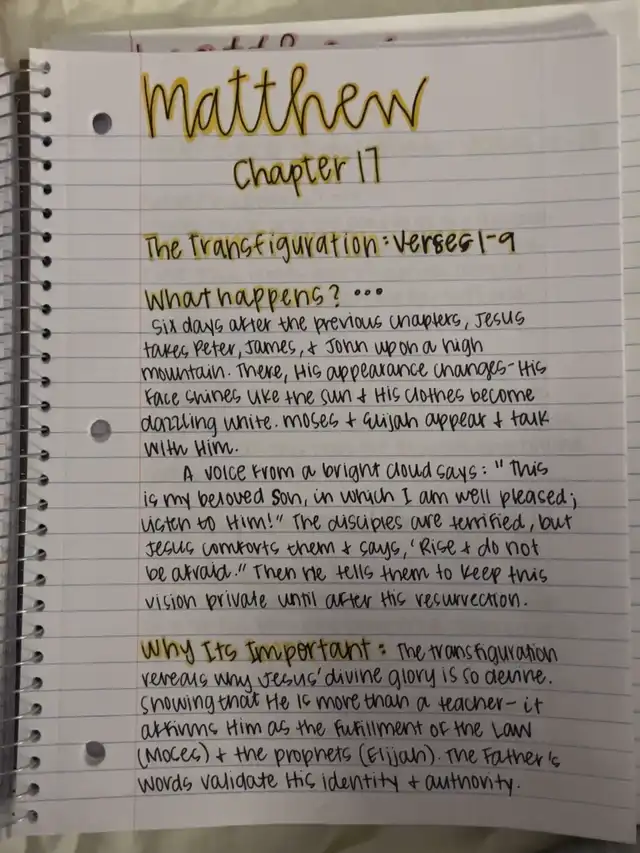 Matthew
Chapter 17
The Transfiguration: Verses 1-9
What happens? ...
Six days after the previous chapters, Jesus
takes Peter, James, + John up on a high
mountain. There, His appearance changes - His
face shines like the sun + His clothes become
dazzling white. Moses + Elijah appear + talk
with Him.
A voice from a bright cloud says: "This
is my beloved Son, in which I am well pleased;
listen to Him!" The disciples are terrified, but
Jesus comforts them + says, 'Rise + do not
be afraid." Then He tells them to keep this
vision private until after His resurrection.
Why Its Important: The transfiguration
reveals why Jesus' divine glory is so devine.
Showing that He is more than a teacher - it
affirms Him as the fufillment of the Law
(Moces) + the prophets (Elijah). The Father's
words validate His identity + authority.